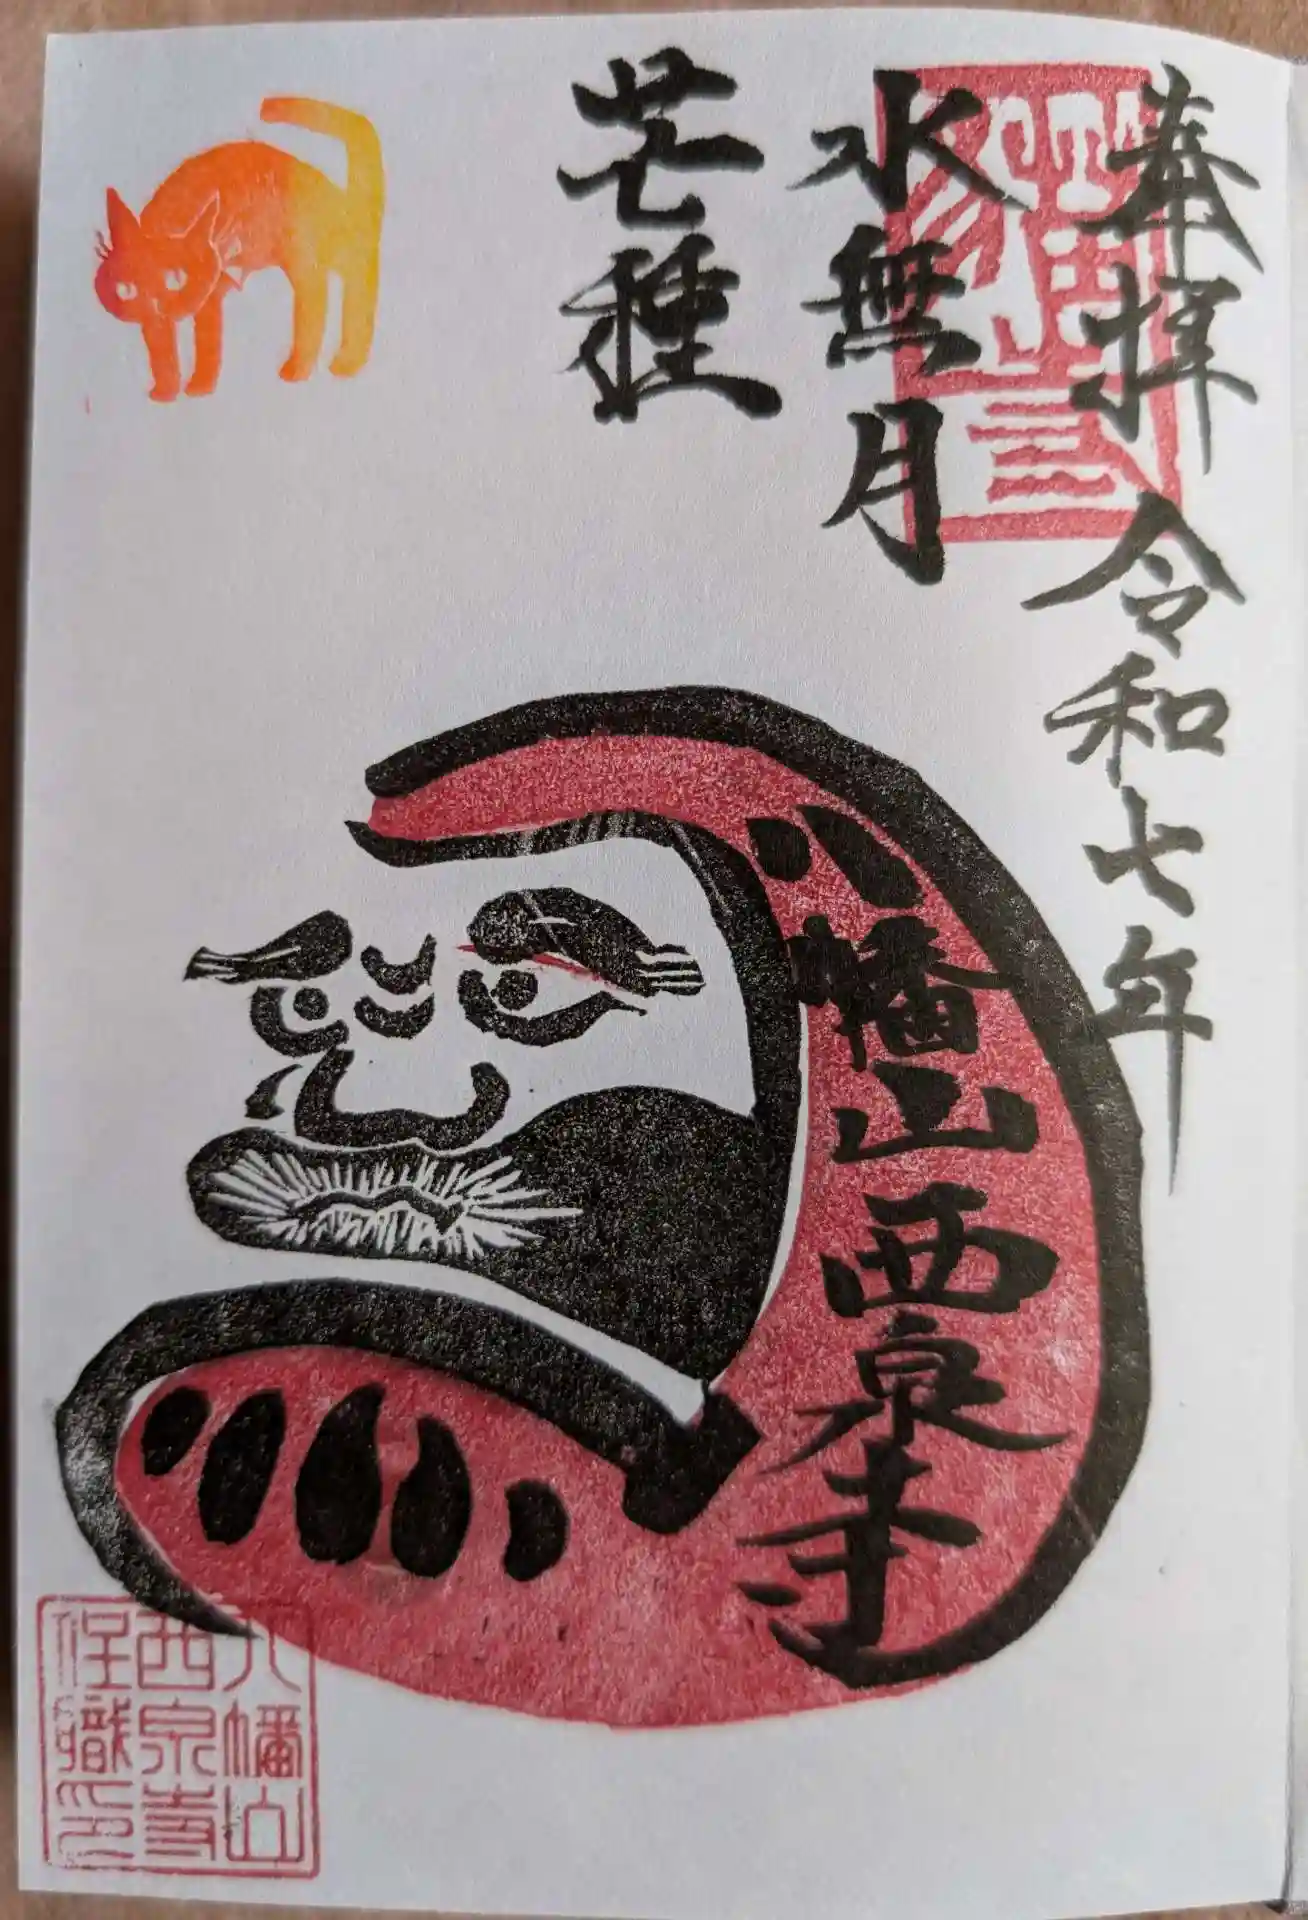 奉拝 令和七年
水無月
芒種
八幡山 西泉寺
八幡山
西泉寺
住職印